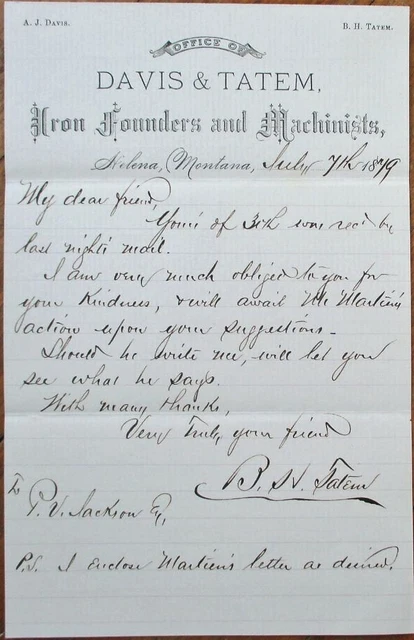 A. J. DAVIS.
B. H. TATEM.
OFFICE OF
DAVIS & TATEM,
Iron Founders and Machinists,
Helena, Montana, July 7th 1879
My dear friend,
Yours of 30th was recd by
last night's mail.
I am very much obliged to you for
your kindness, & will await Mr Martien's
action upon your suggestions.
Should he write me, will let you
see what he says.
With many thanks,
Very Truly your friend
B. H. Tatem
To
P. V. Jackson Esq,
P.S. I enclose Martien's letter as desired.